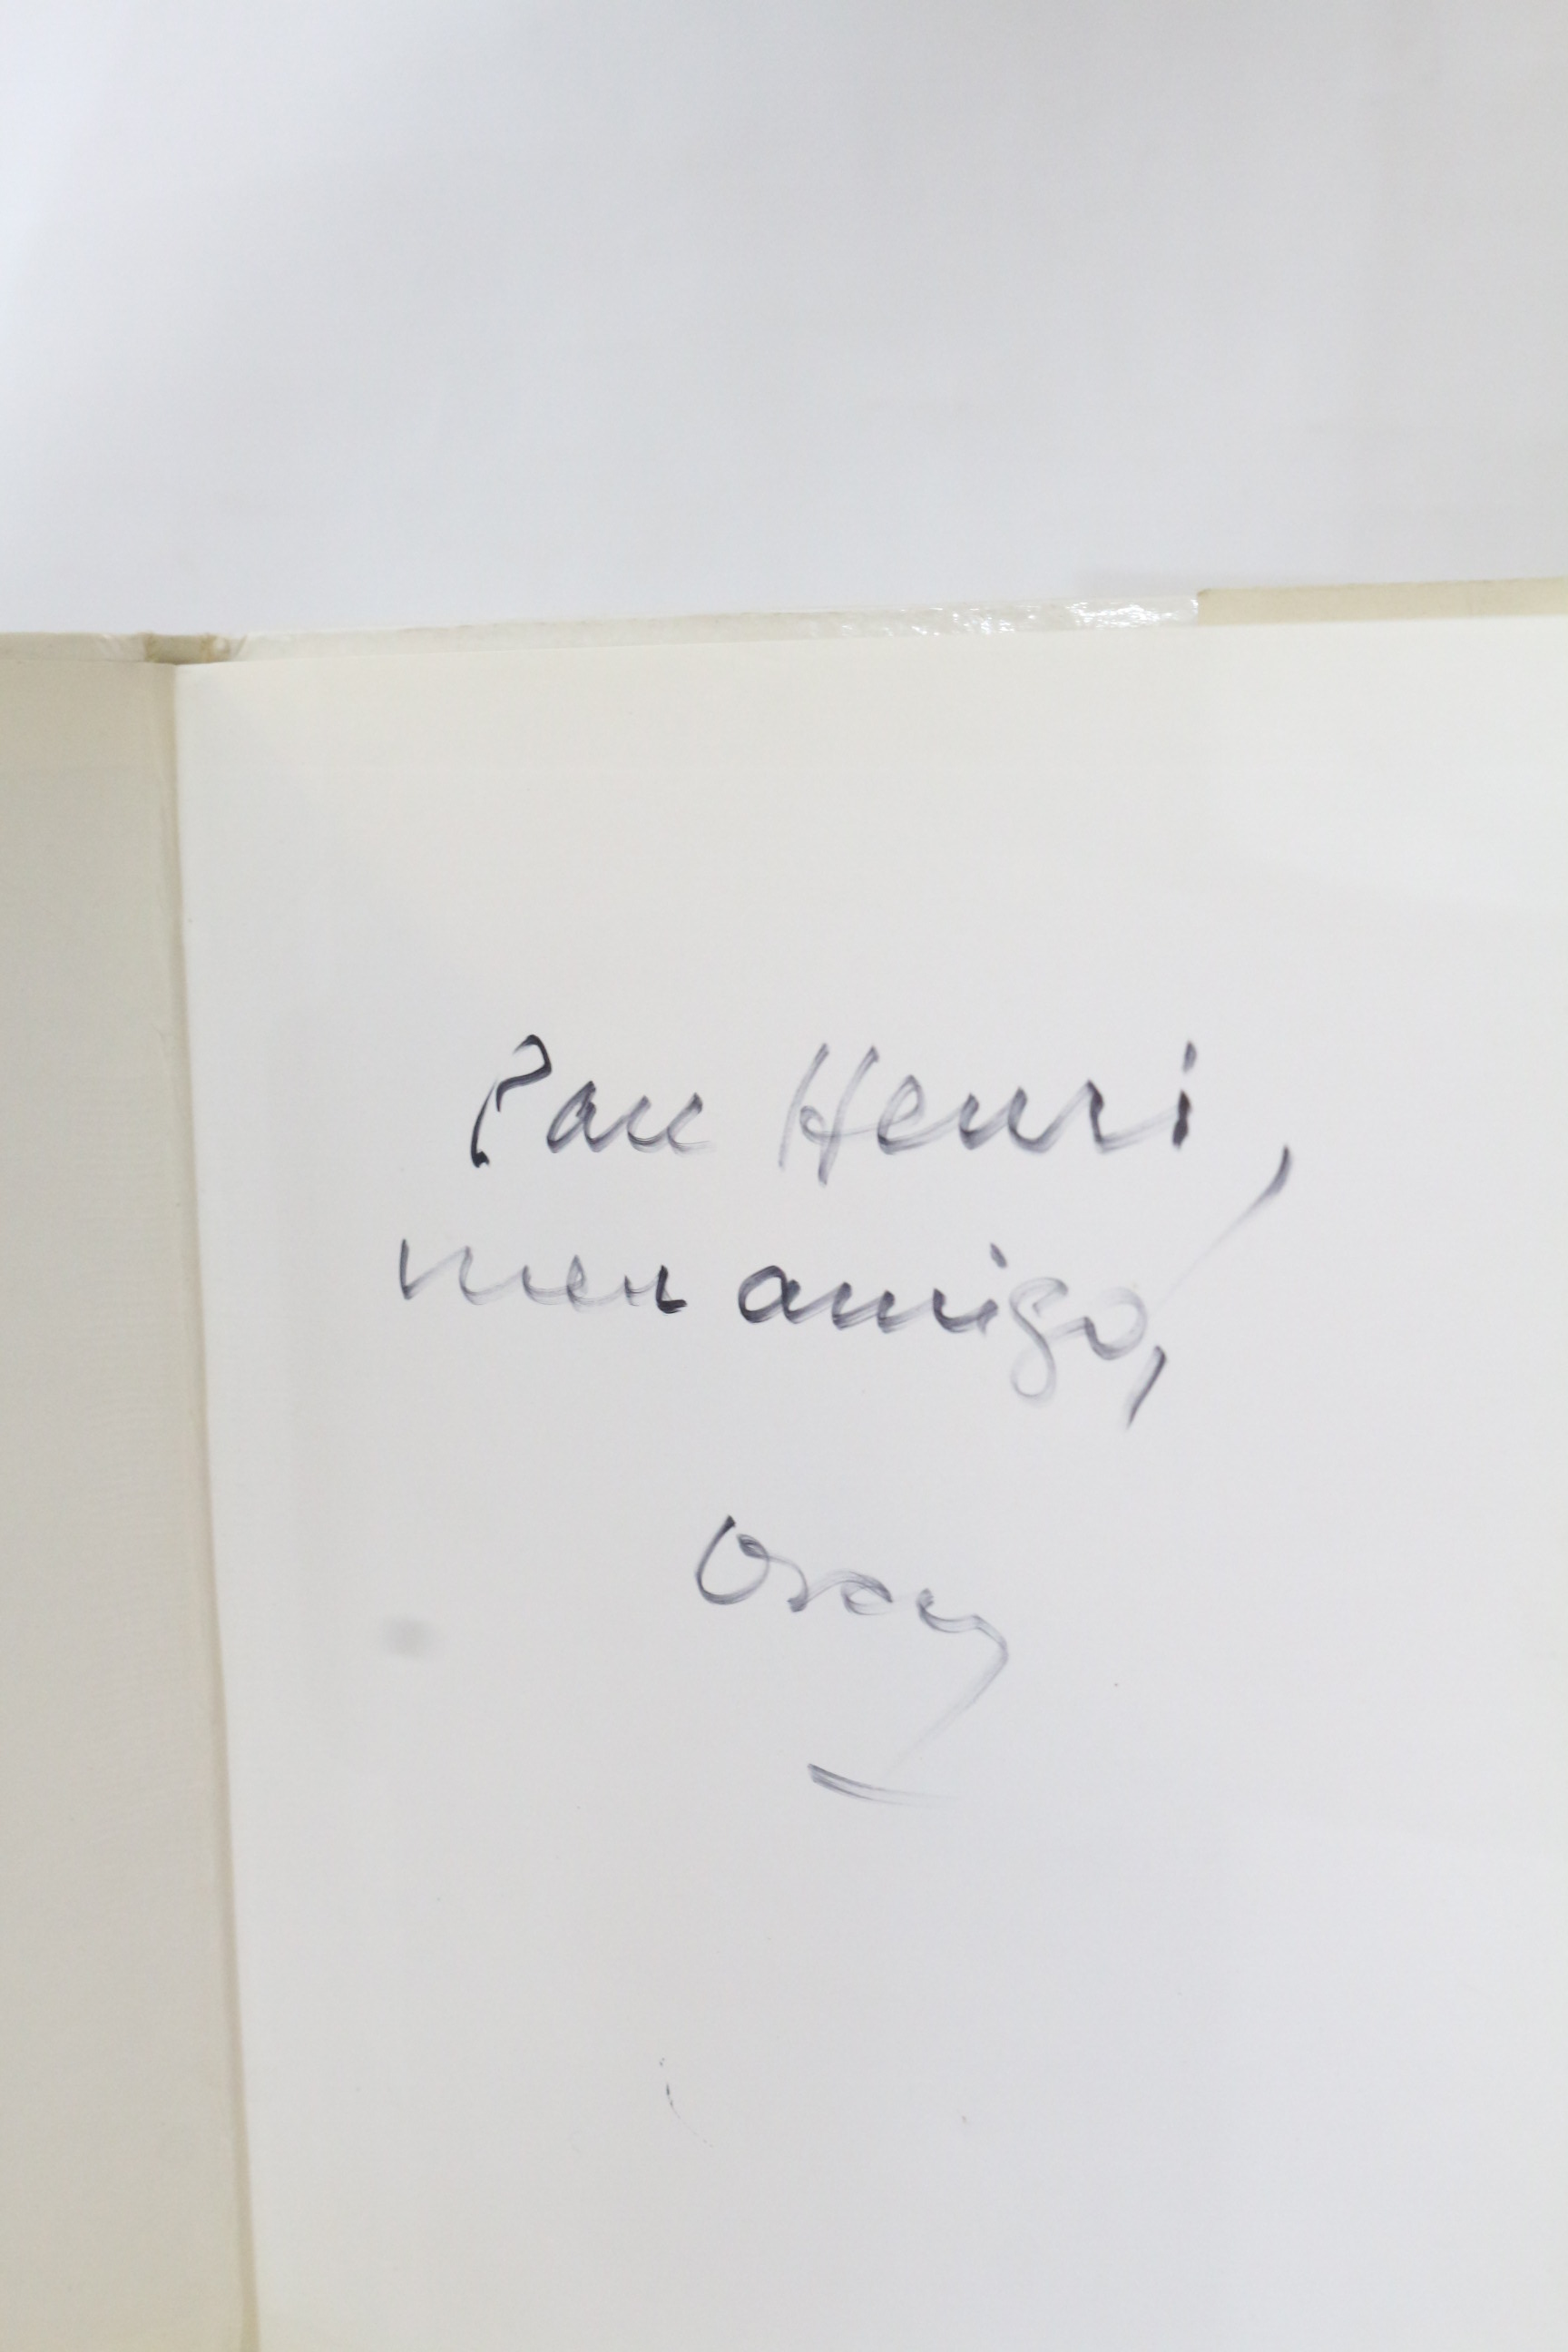 Para Henri,
meu amigo,
Oscar